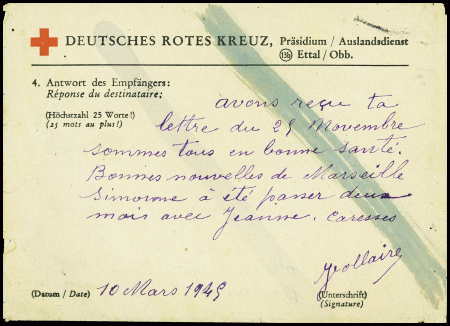 DEUTSCHES ROTES KREUZ, Präsidium / Auslandsdienst
(13b) Ettal / Obb.
4. Antwort des Empfängers:
Réponse du destinataire:
(Höchstzahl 25 Worte!)
(25 mots au plus!)
avons reçu ta
lettre du 25 Novembre
sommes tous en bonne santé.
Bonnes nouvelles de Marseille
Simonne à été passer deux
mois avec Jeanne. Caresses
(Datum / Date) 10 Mars 1945
(Unterschrift)
(Signature)